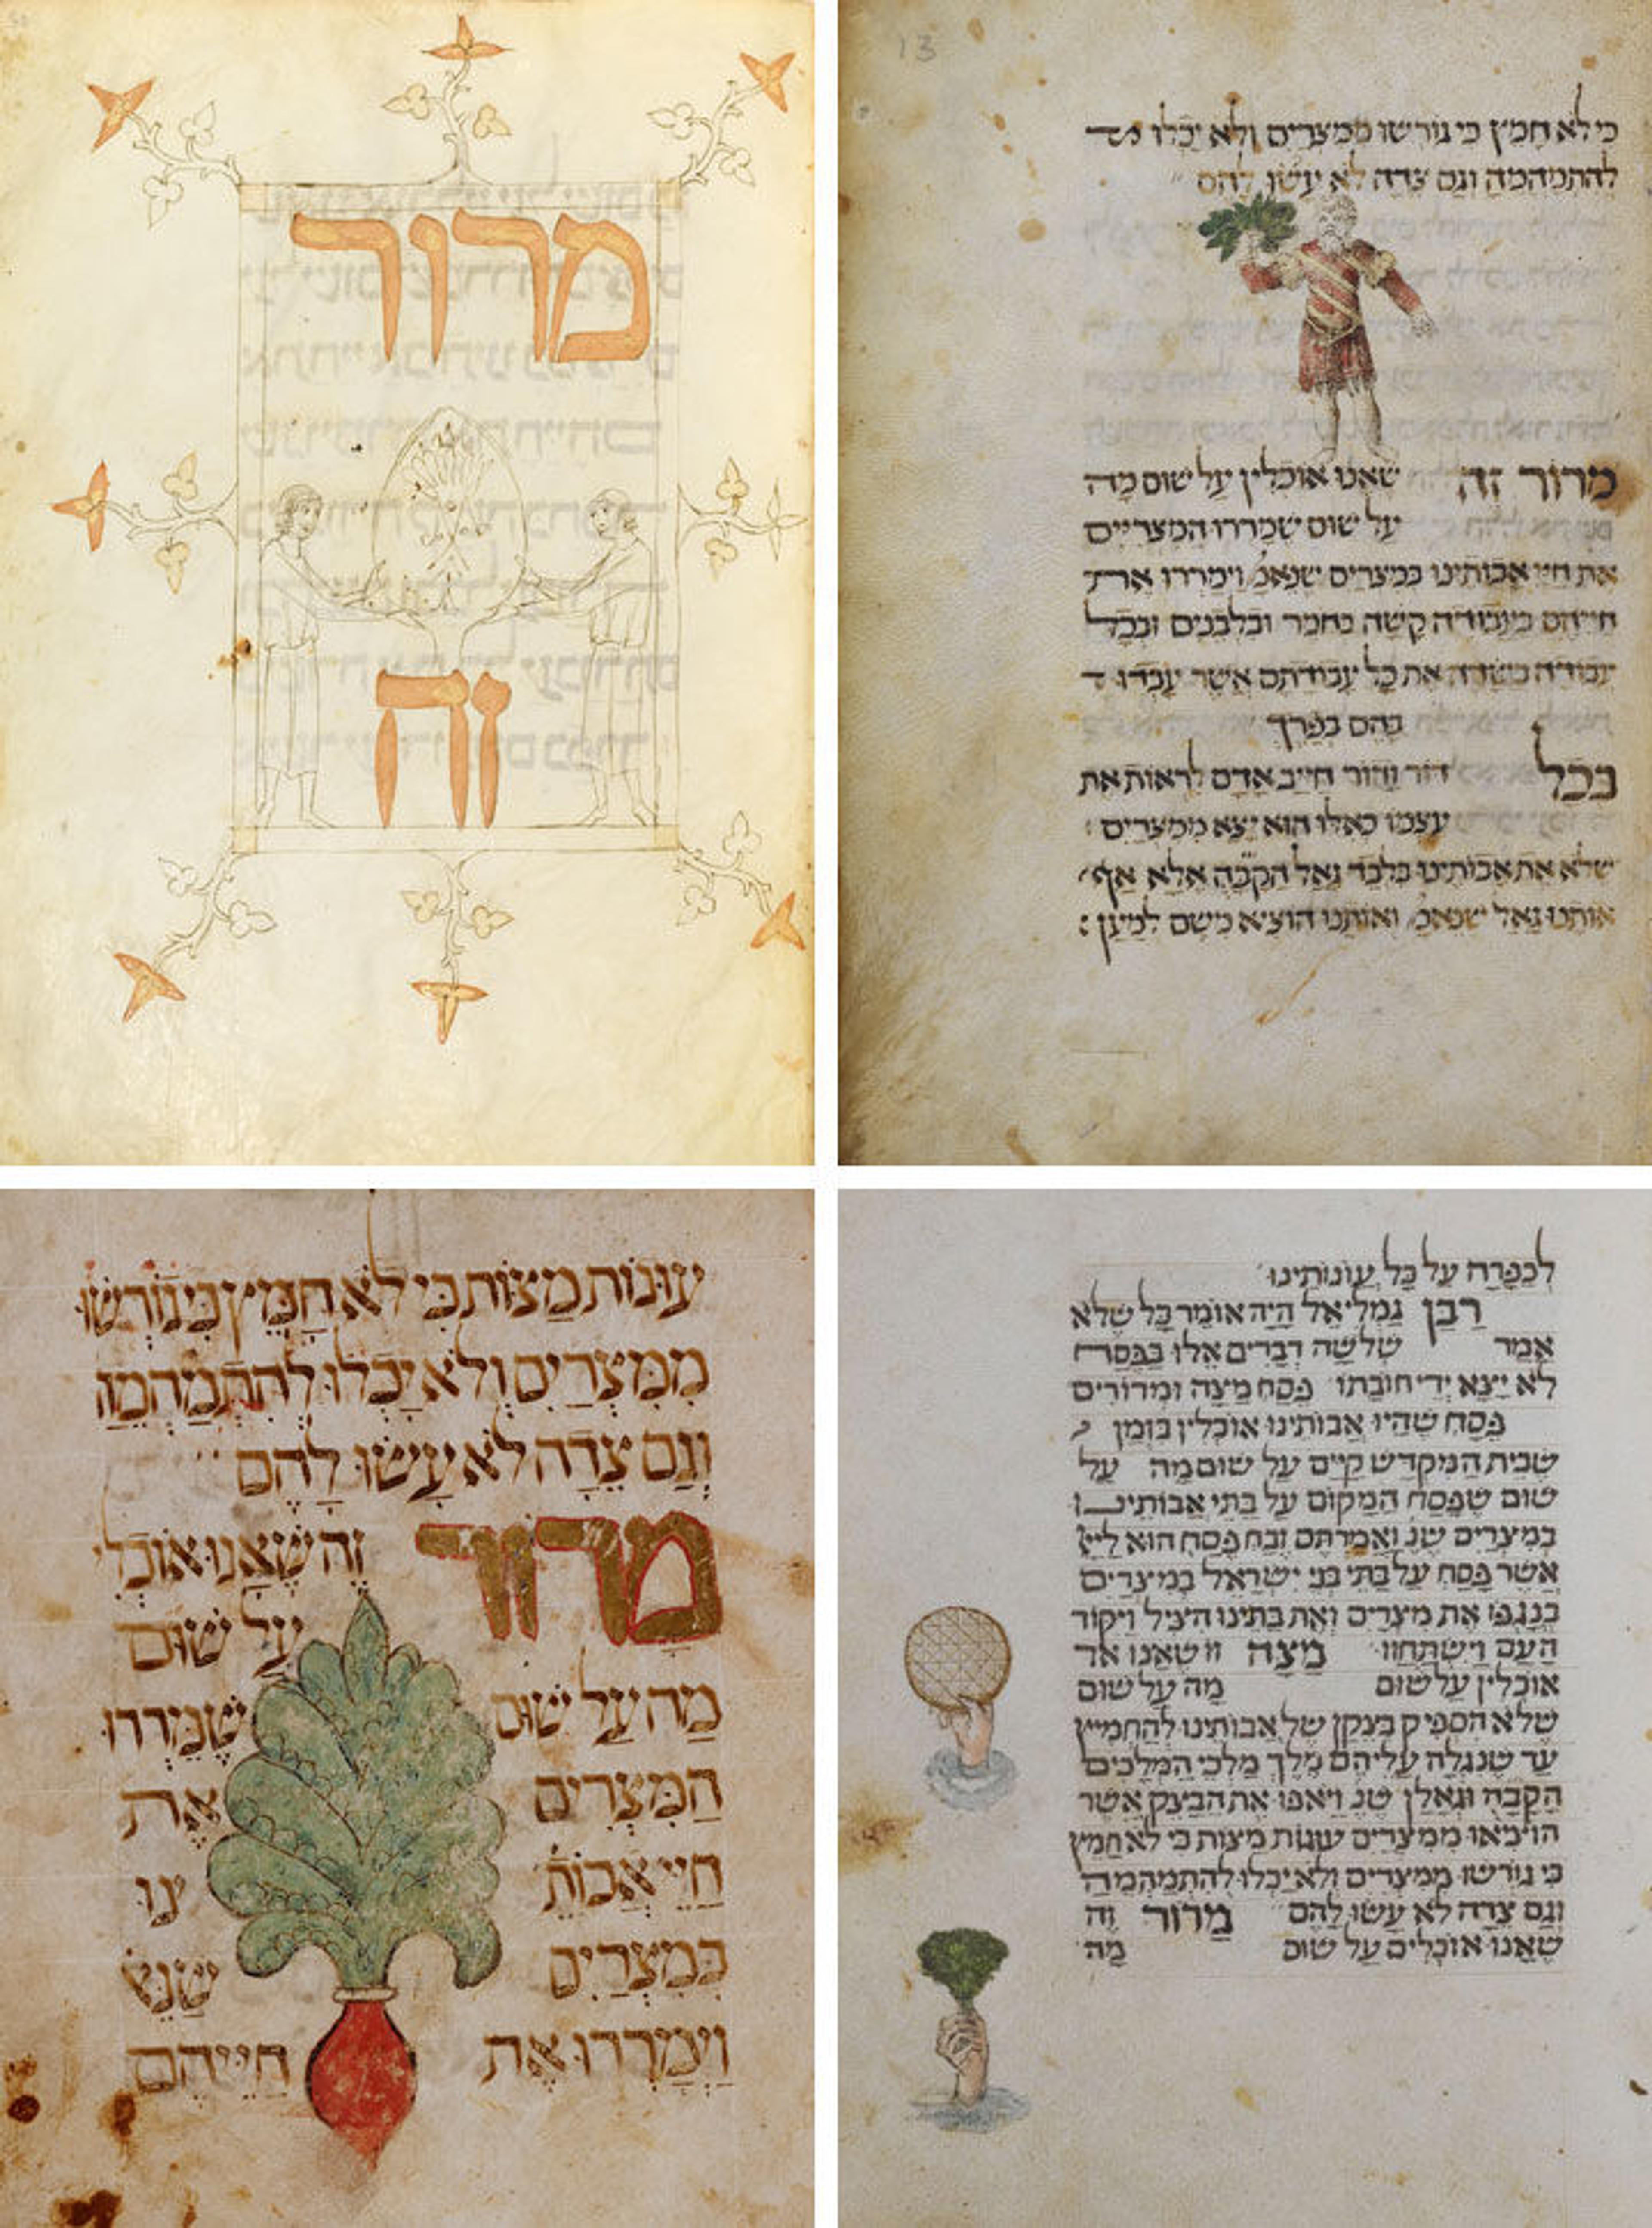 מרור
זה
13
כי לא חמץ כי גורשו ממצרים ולא יכלו
להתמהמה וגם צדה לא עשו להם
מרור זה שאנו אוכלין על שום מה
על שום שמררו המצריים
את חיי אבותינו במצרים שנאמ' וימררו את
חייהם בעבודה קשה בחמר ובלבנים ובכל
עבודה בשדה את כל עבודתם אשר עבדו
בהם בפרך
בכל דור ודור חייב אדם לראות את
עצמו כאלו הוא יצא ממצרים :
שלא את אבותינו בלבד גאל הקבה אלא אף
אותנו גאל שנאמ' ואותנו הוציא משם למען :
עוּגוֹת מַצּוֹת כִּי לֹא חָמֵץ כִּי גוֹרְשׁוּ
מִמִּצְרַיִם וְלֹא יָכְלוּ לְהִתְמַהְמֵהַּ
וְגַם צֵדָה לֹא עָשׂוּ לָהֶם
מרור זֶה שֶׁאָנוּ אוֹכְלִי
עַל שׁוּם
מַה עַל שׁוּם שֶׁמֵּרְרוּ
הַמִּצְרִים אֶת
חַיֵּי אֲבוֹתֵ ינוּ
בְּמִצְרַיִם שֶׁנֶּא'
וַיְמָרְרוּ אֶת חַיֵּיהֶם
לכפרה על כל עונותינו
רבן גמליאל היה אומר כל שלא
אמר שלשה דברים אלו בפסח
לא יצא ידי חובתו פסח מצה ומרורים
פסח שהיו אבותינו אוכלין בזמן
שבית המקדש קיים על שום מה על
שום שפסח המקום על בתי אבותינו
במצרים שנ' ואמרתם זבח פסח הוא ליי'
אשר פסח על בתי בני ישראל במצרים
בנגפו את מצרים ואת בתינו הציל ויקוד
העם וישתחוו מצה זו שאנו
אוכלין על שום מה על שום
שלא הספיק בצקן של אבותינו להחמיץ
עד שנגלה עליהם מלך מלכי המלכים
הקבה וגאלן שנ' ויאפו את הבצק אשר
הוציאו ממצרים עוגות מצות כי לא חמץ
כי גורשו ממצרים ולא יכלו להתמהמה
וגם צדה לא עשו להם מרור זה
שאנו אוכלים על שום מה